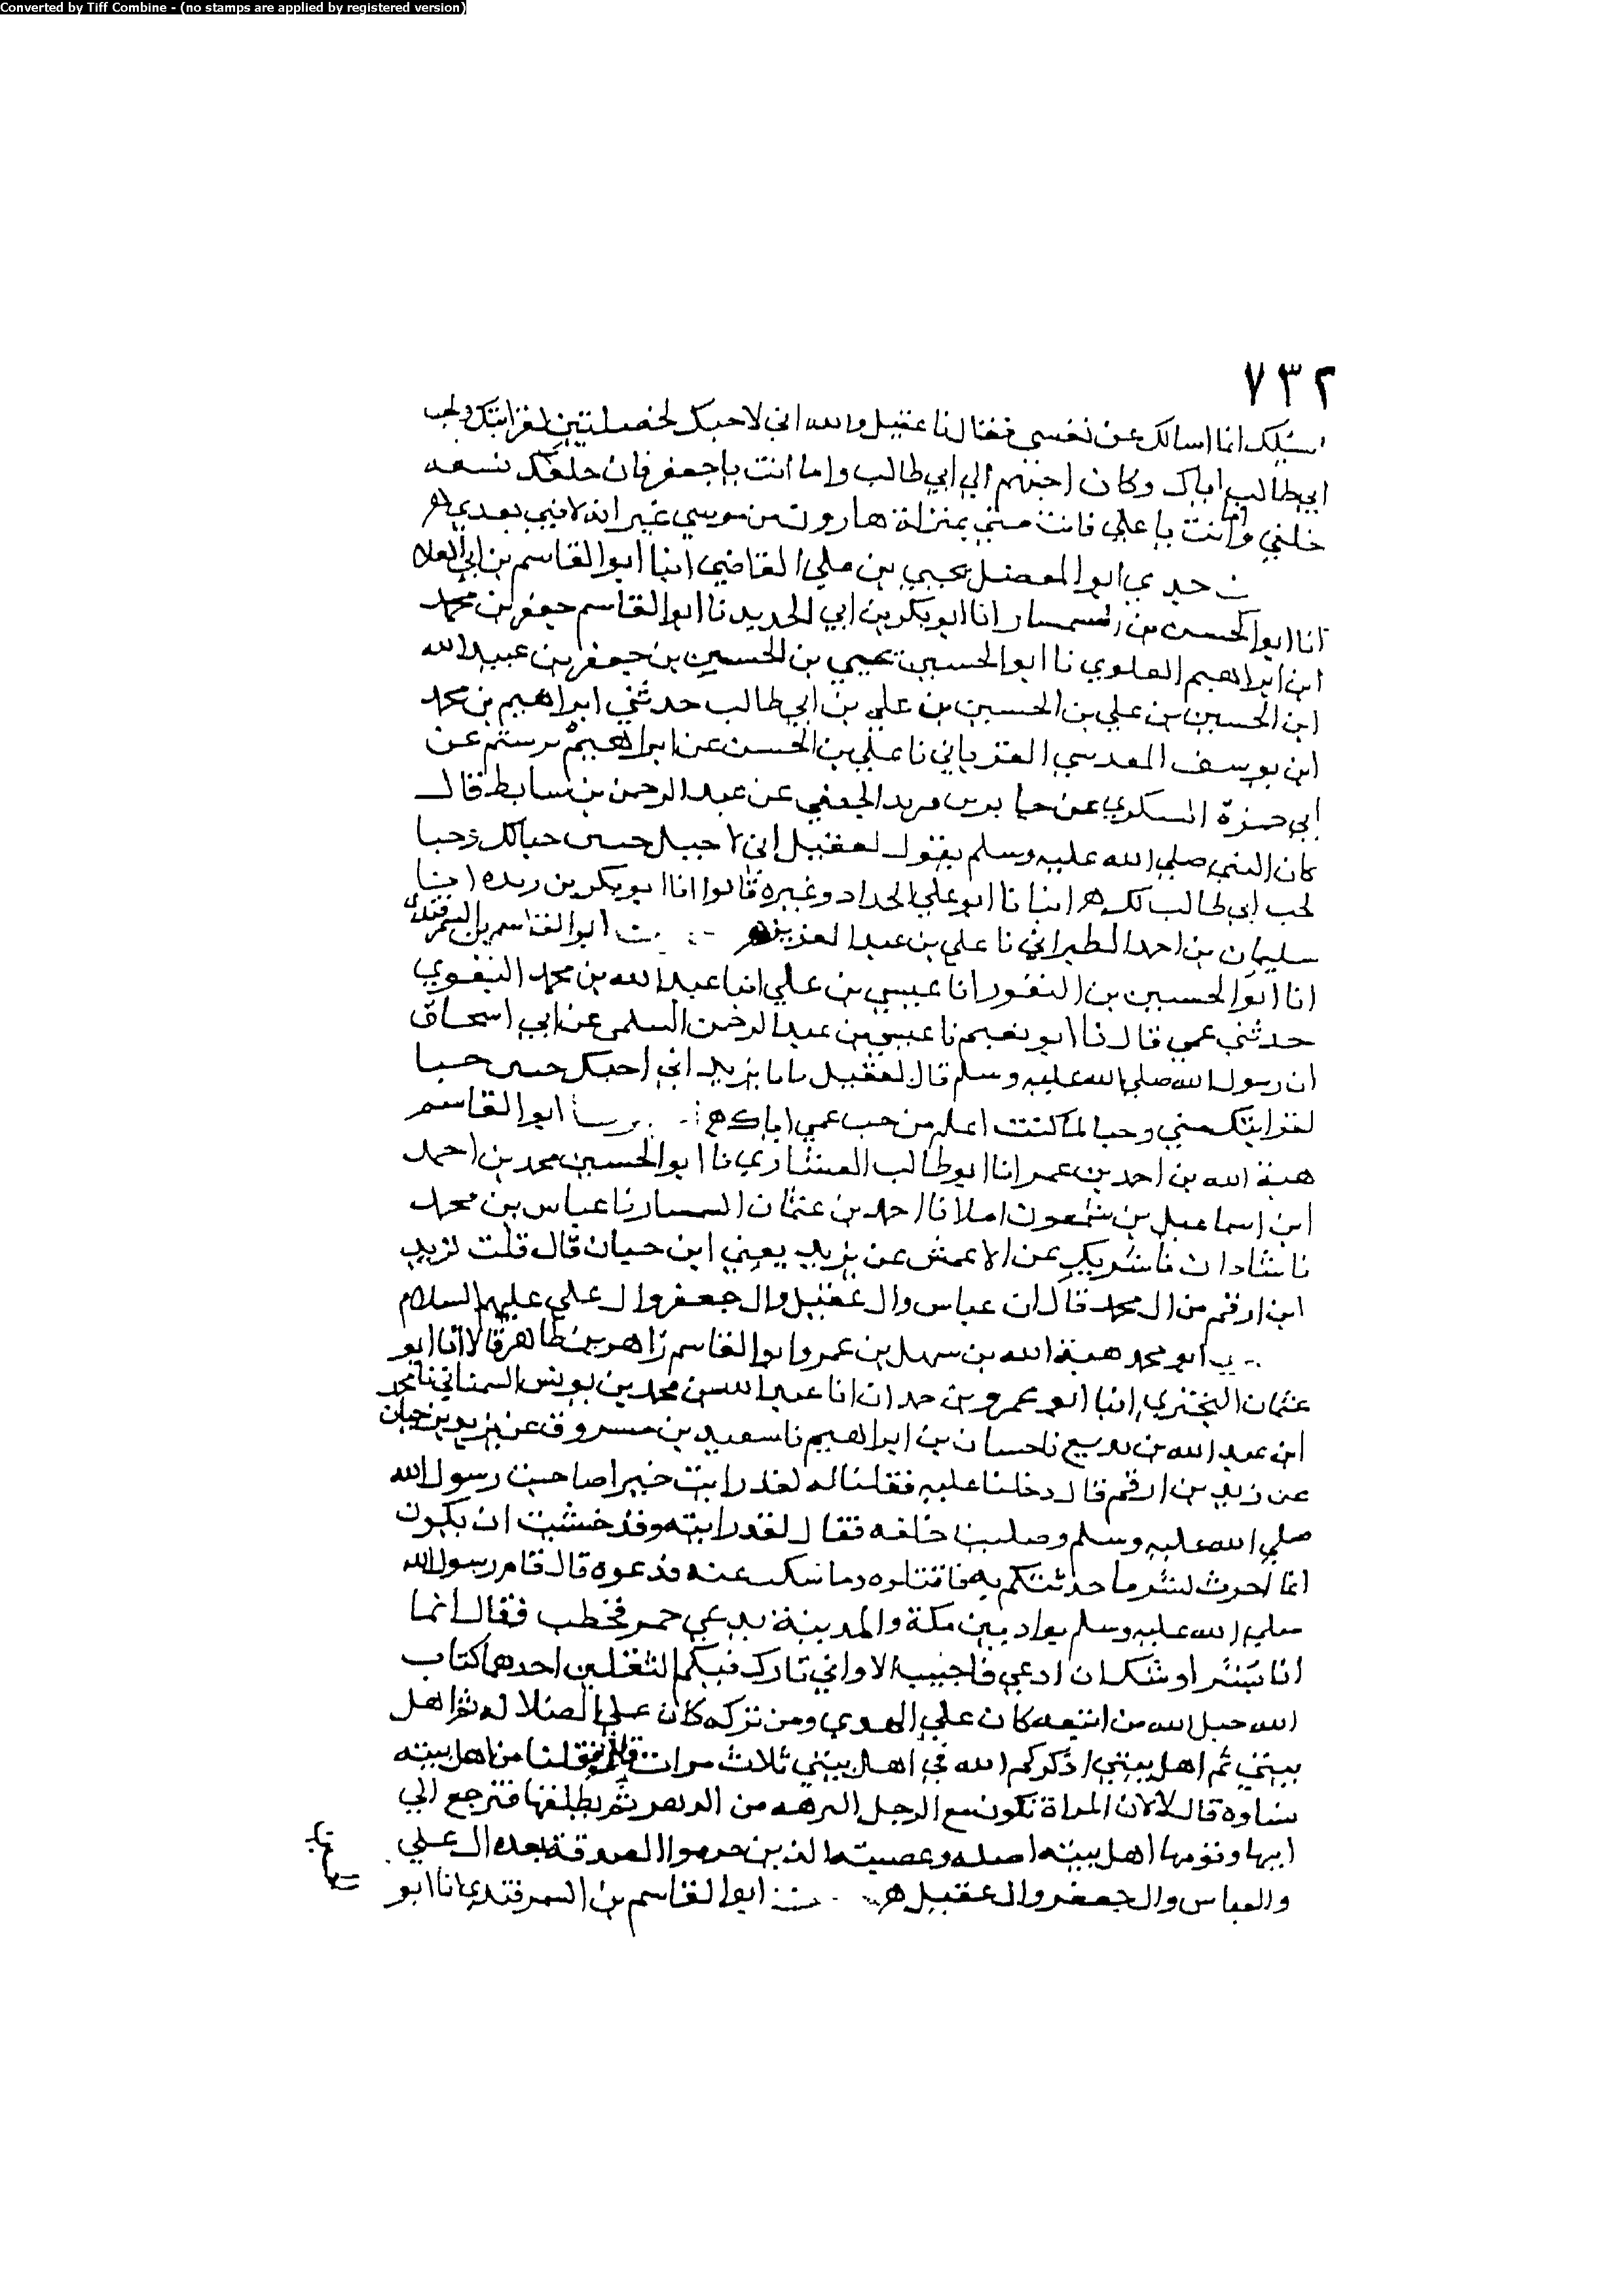 Converted by Tiff Combine - (no stamps are applied by registered version)
٧٣٢
انما اسالك عن نفسي فقال لنا عقيل والله اني لاحبك لخصلتين لقرابتك ولحب
ابي طالب اياك وكان احبهم الي ابي طالب واما انت يا جعفر فان خلقك يشبه
خلقي وانت يا علي فانت مني بمنزلة هارون من موسي غير انه لا نبي بعدي
جدي ابو المفضل يحيي بن علي القاضي انبا ابو القاسم بن ابي العلاء
انا ابو الحسن بن السمسار انا ابو بكر بن ابي الحديد نا ابو القاسم جعفر بن محمد
ابن ابراهيم العلوي نا ابو الحسين يحيي بن الحسين بن جعفر بن عبيد الله
ابن الحسين بن علي بن الحسين بن علي بن ابي طالب حدثني ابراهيم بن محمد
ابن يوسف المقدسي الفريابي نا علي بن الحسن عن ابراهيم رستم عن
ابي حمزة السكري عن جابر بن يزيد الجعفي عن عبد الرحمن بن سابط قال
كان النبي صلي الله عليه وسلم يقول لعقيل اني لاحبك حبين حبا لك وحبا
لحب ابي طالب لك ه انبانا ابو علي الحداد وغيره قالوا انا ابو بكر بن ريده انبا
سليمان بن احمد الطبراني نا علي بن عبد العزيز ه ابو القاسم بن السمرقندي
انا ابو الحسين بن النقور انا عيسي بن علي انبا عبد الله بن محمد البغوي
حدثني عمي قال نا ابو نعيم نا عيسي بن عبد الرحمن السلمي عن ابي اسحاق
ان رسول الله صلي الله عليه وسلم قال لعقيل يا ابا يزيد اني احبك حبين حبا
لقرابتك مني وحبا لما كنت اعلم من حب عمي اياك ه ابو القاسم
هبة الله بن احمد بن عمر انا ابو طالب العشاري نا ابو الحسين محمد بن احمد
ابن اسماعيل بن شمعون املا نا احمد بن عثمان السمسار نا عباس بن محمد
نا شاذان نا شريك عن الاعمش عن يزيد يعني ابن حيان قال قلت لزيد
ابن ارقم من ال محمد قال ال عباس وال عقيل وال جعفر وال علي عليهم السلام
ابو محمد هبة الله بن سهل بن عمر وابو القاسم زاهر بن طاهر قالا انا ابو
عثمان البختري انبا ابو عمرو بن حمدان انا عبد الله بن محمد بن يونس السمناني نا محمد
ابن عبد الله بن بزيع نا حسان بن ابراهيم نا سعيد بن مسروق عن يزيد بن حيان
عن زيد بن ارقم قال دخلنا عليه فقلنا له لقد رايت خيرا صاحبت رسول الله
صلي الله عليه وسلم وصليت خلفه فقال لقد رايته وقد خشيت ان يكون
انما اخرت لشر ما حدثتكم به فاقبلوه وما سكت عنه فدعوه قال قام رسول الله
صلي الله عليه وسلم بواد بين مكة والمدينة يدعي خم فخطب فقال انما
انا بشر اوشك ان ادعي فاجيب الا واني تارك فيكم الثقلين احدهما كتاب
الله حبل الله من اتبعه كان علي الهدي ومن تركه كان علي الضلالة ثم اهل
بيتي ثم اهل بيتي اذكركم الله في اهل بيتي ثلاث مرات فقلنا من اهل بيته
نساوه قال لا لان المراة تكون مع الرجل البرهه من الدهر ثم يطلقها فترجع الي
ابيها وقومها اهل بيته اصله وعصبته الذين حرموا الصدقة بعده ال علي
والعباس وال جعفر وال عقيل ه ابو القاسم بن السمرقندي انا ابو